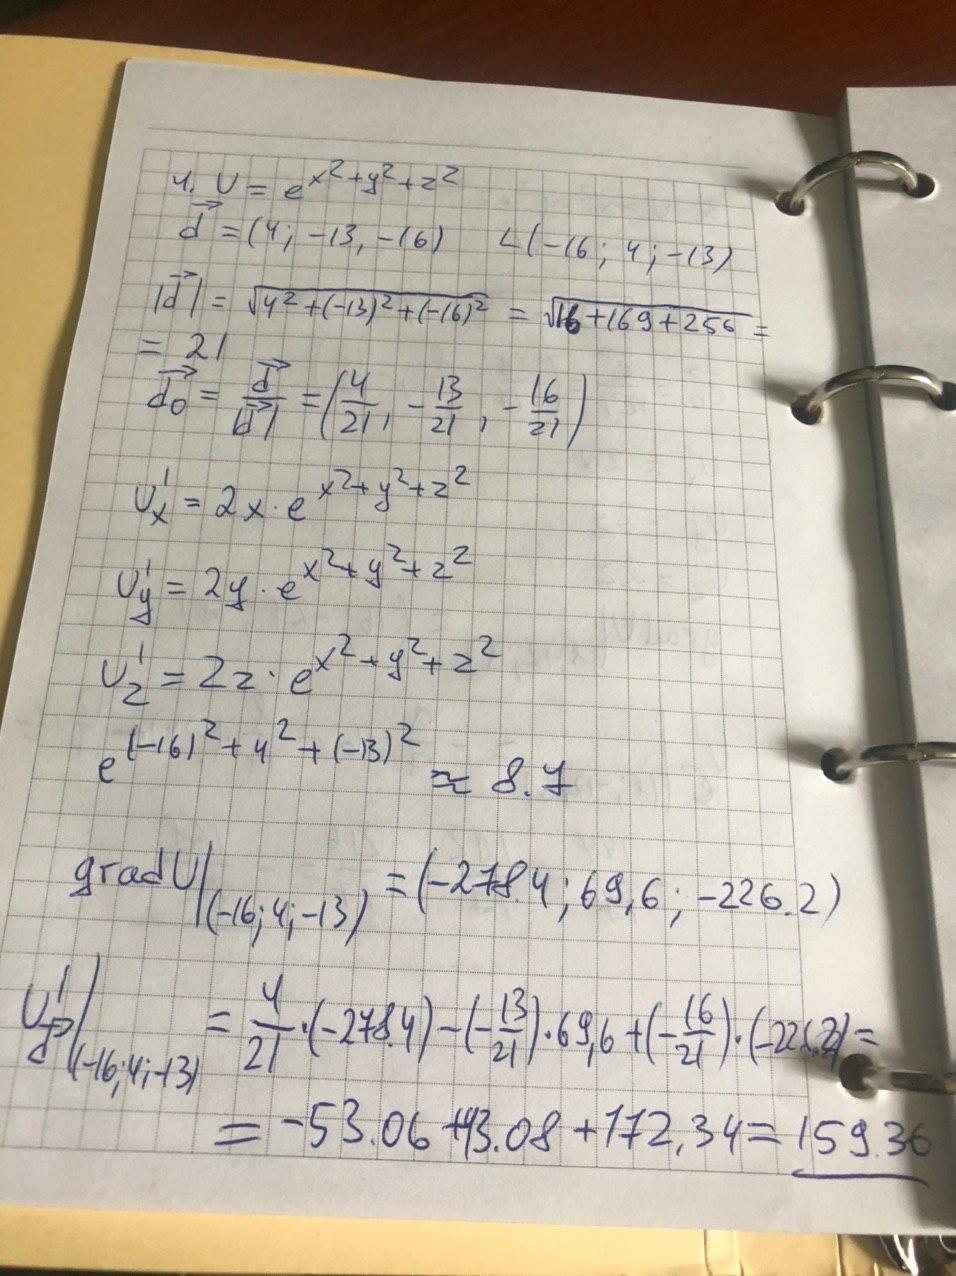 4. U = e^{x²+y²+z²}
d⃗ = (4; -13, -16) L(-16; 4; -13)
|d⃗| = √(4²+(-13)²+(-16)²) = √(16+169+256) =
= 21
d⃗₀ = d⃗/|d⃗| = (4/21, -13/21, -16/21)
U'ₓ = 2x · e^{x²+y²+z²}
U'_y = 2y · e^{x²+y²+z²}
U'_z = 2z · e^{x²+y²+z²}
e^{(-16)²+4²+(-13)²} ≈ 8.7
grad U|_(-16; 4; -13) = (-278.4; 69,6; -226.2)
U'_d⃗|_(-16; 4; -13) = 4/21 · (-278.4) - (-13/21) · 69,6 + (-16/21) · (-226.2) =
= -53.06 + 43.08 + 172,34 = 159.36